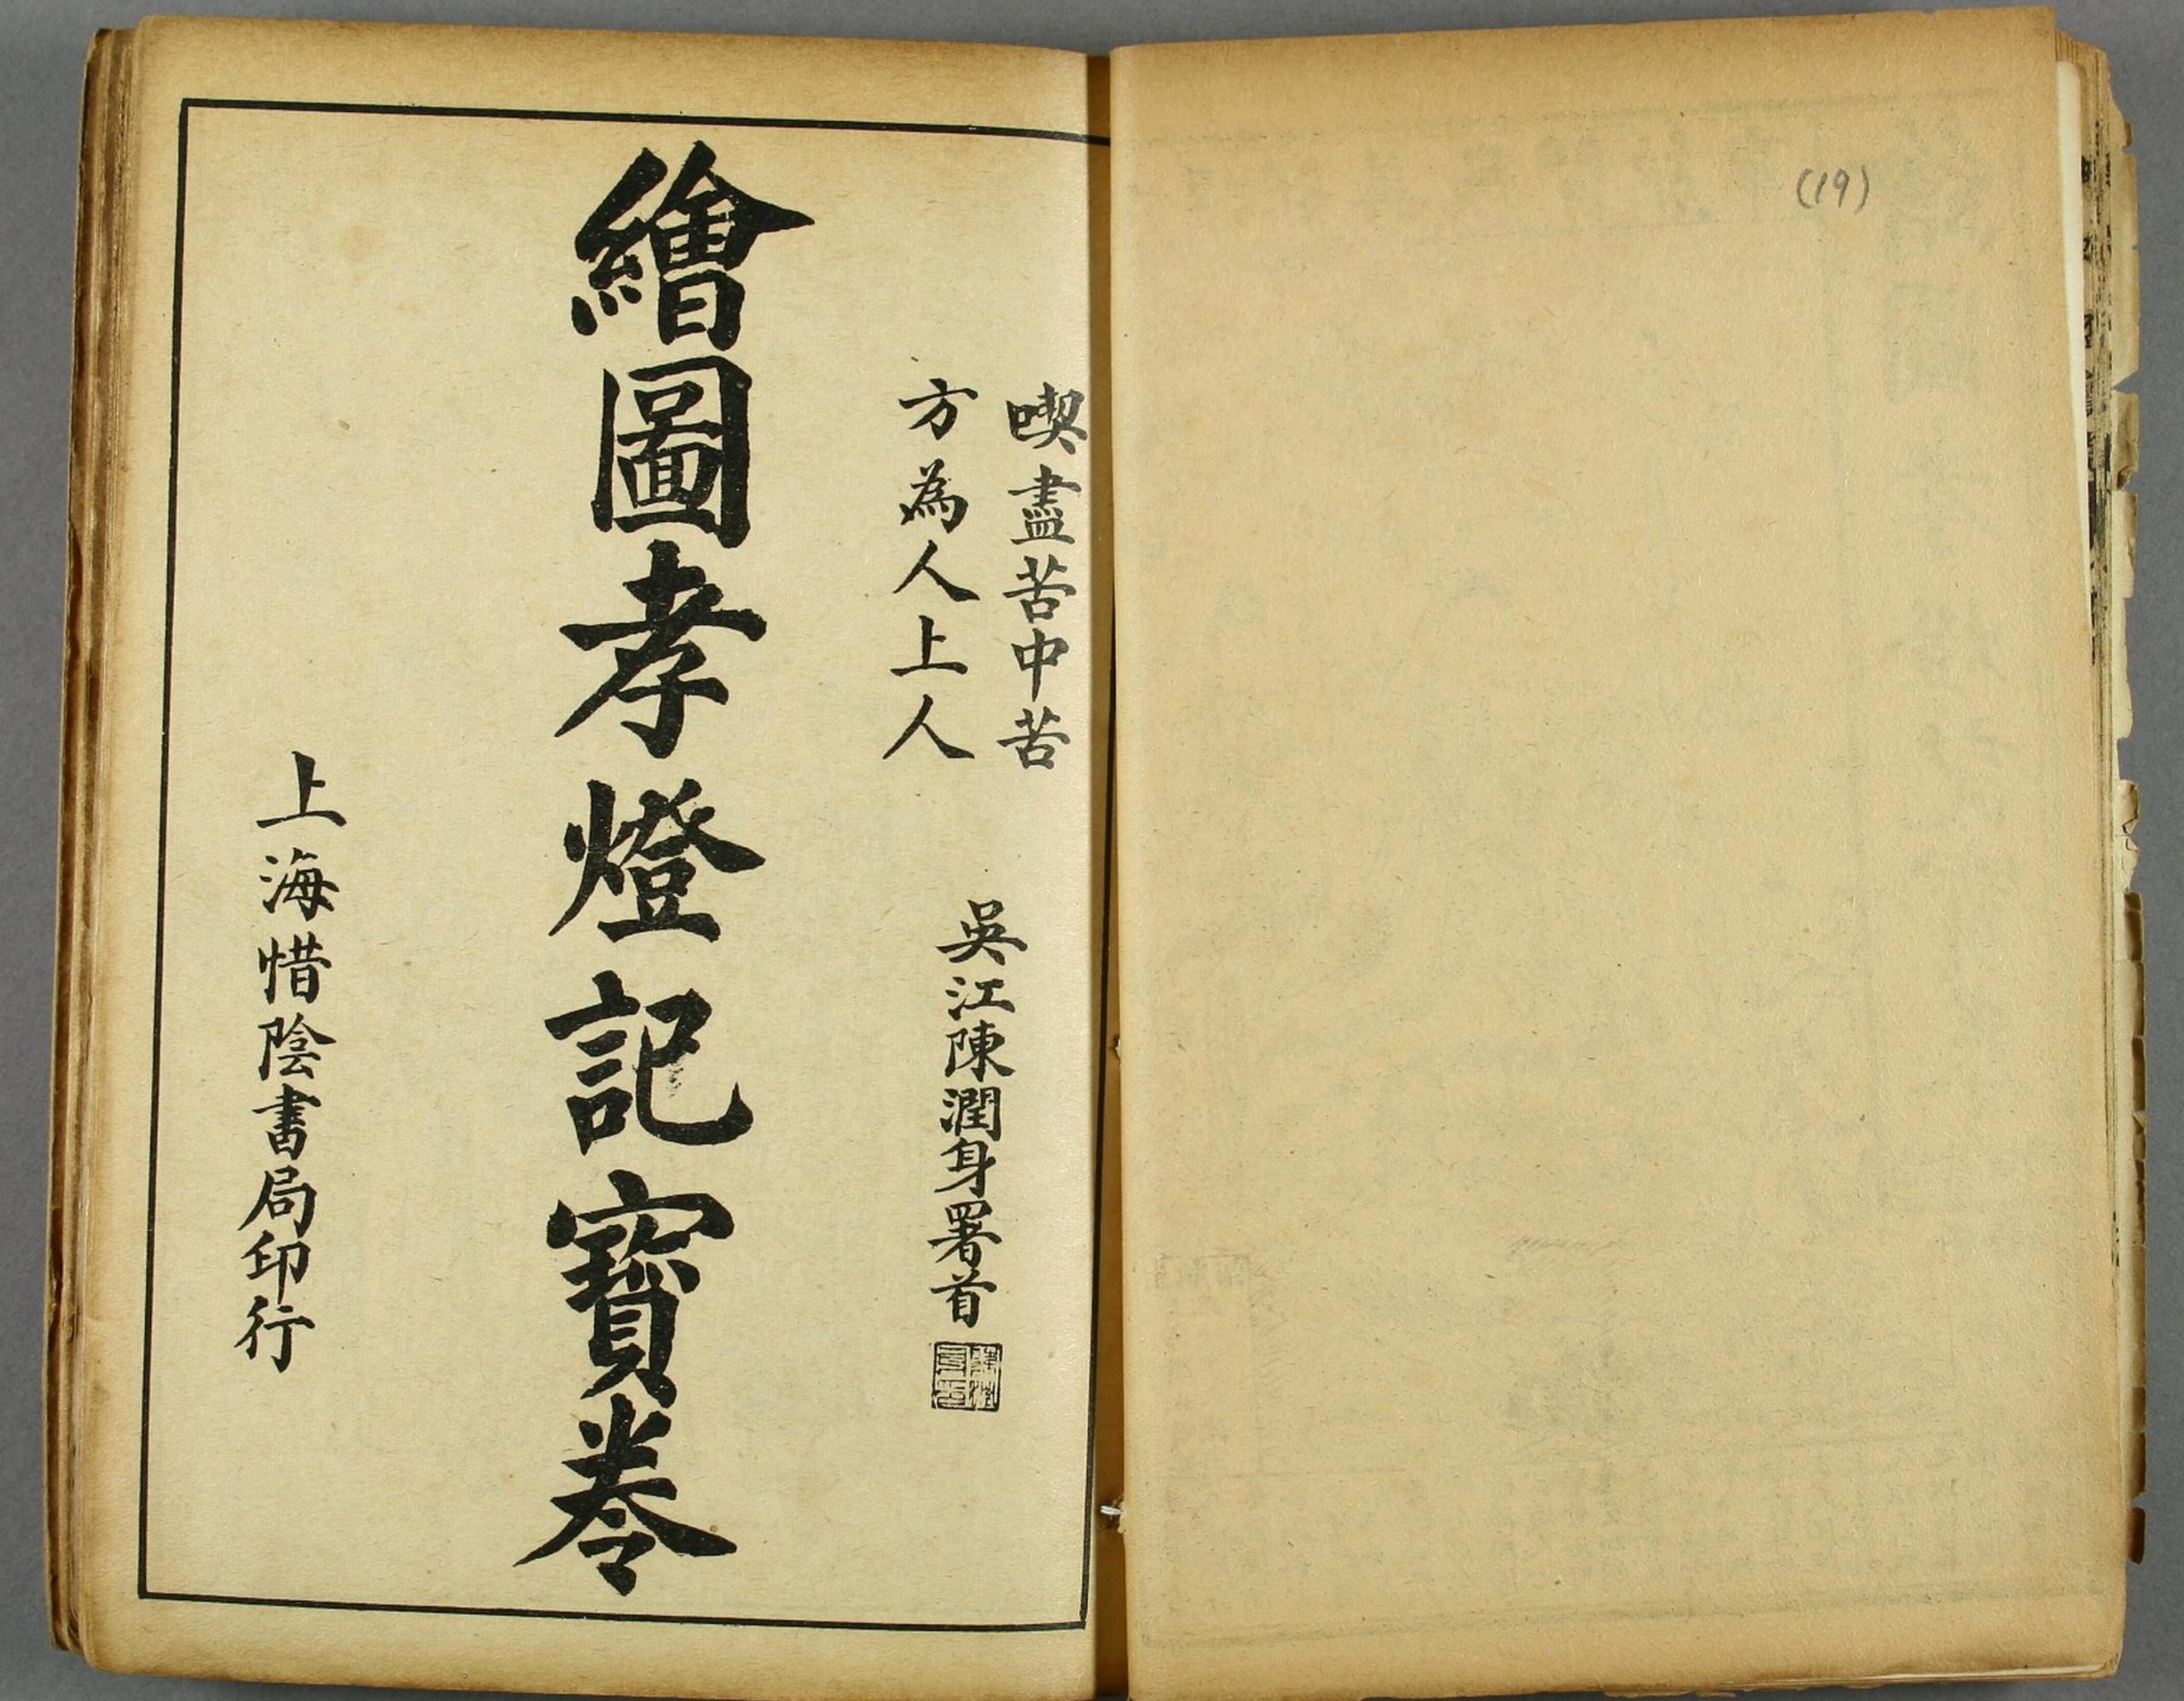 (19)
喫盡苦中苦
方為人上人
吳江陳潤身署首
繪圖孝燈記寳卷
上海惜陰書局印行